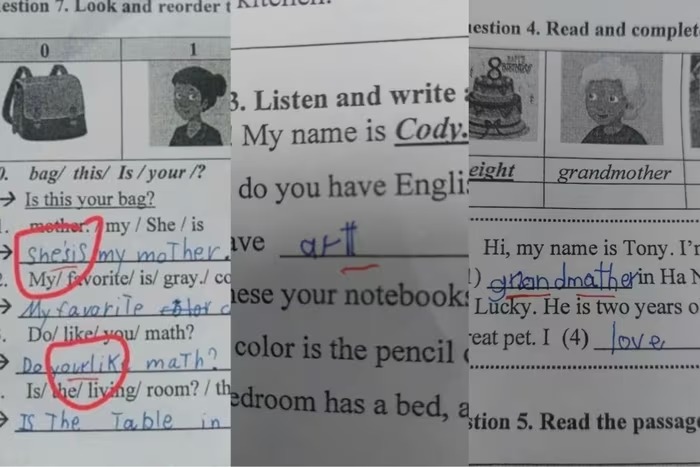 estion 7. Look and reorder t
0 1
0. bag/ this/ Is / your /?
→ Is this your bag?
1. mother. / my / She / is
→ She'sis my moTher.
2. My/ favorite/ is/ gray./ co
→ My favorite color c
. Do/ like/ you/ math?
→ Do yourlik math?
. Is/ the/ living/ room? / th
→ IS The Table in
kitchen.
3. Listen and write a
My name is Cody.
do you have Englis
ave artt
hese your notebooks
color is the pencil c
edroom has a bed, a
estion 4. Read and complet
8 HAPPY BIRTHDAY
eight grandmother
Hi, my name is Tony. I'm
1) grandmather in Ha N
Lucky. He is two years o
reat pet. I (4) love
stion 5. Read the passage